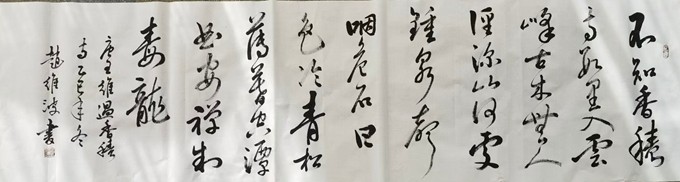 不知香積
寺數里入雲
峰古木無人
徑深山何處
鐘泉聲
咽危石日
色冷青松
薄暮空潭
曲安禅制
毒龍
唐王維過香積
寺乙巳年冬
趙雄波書